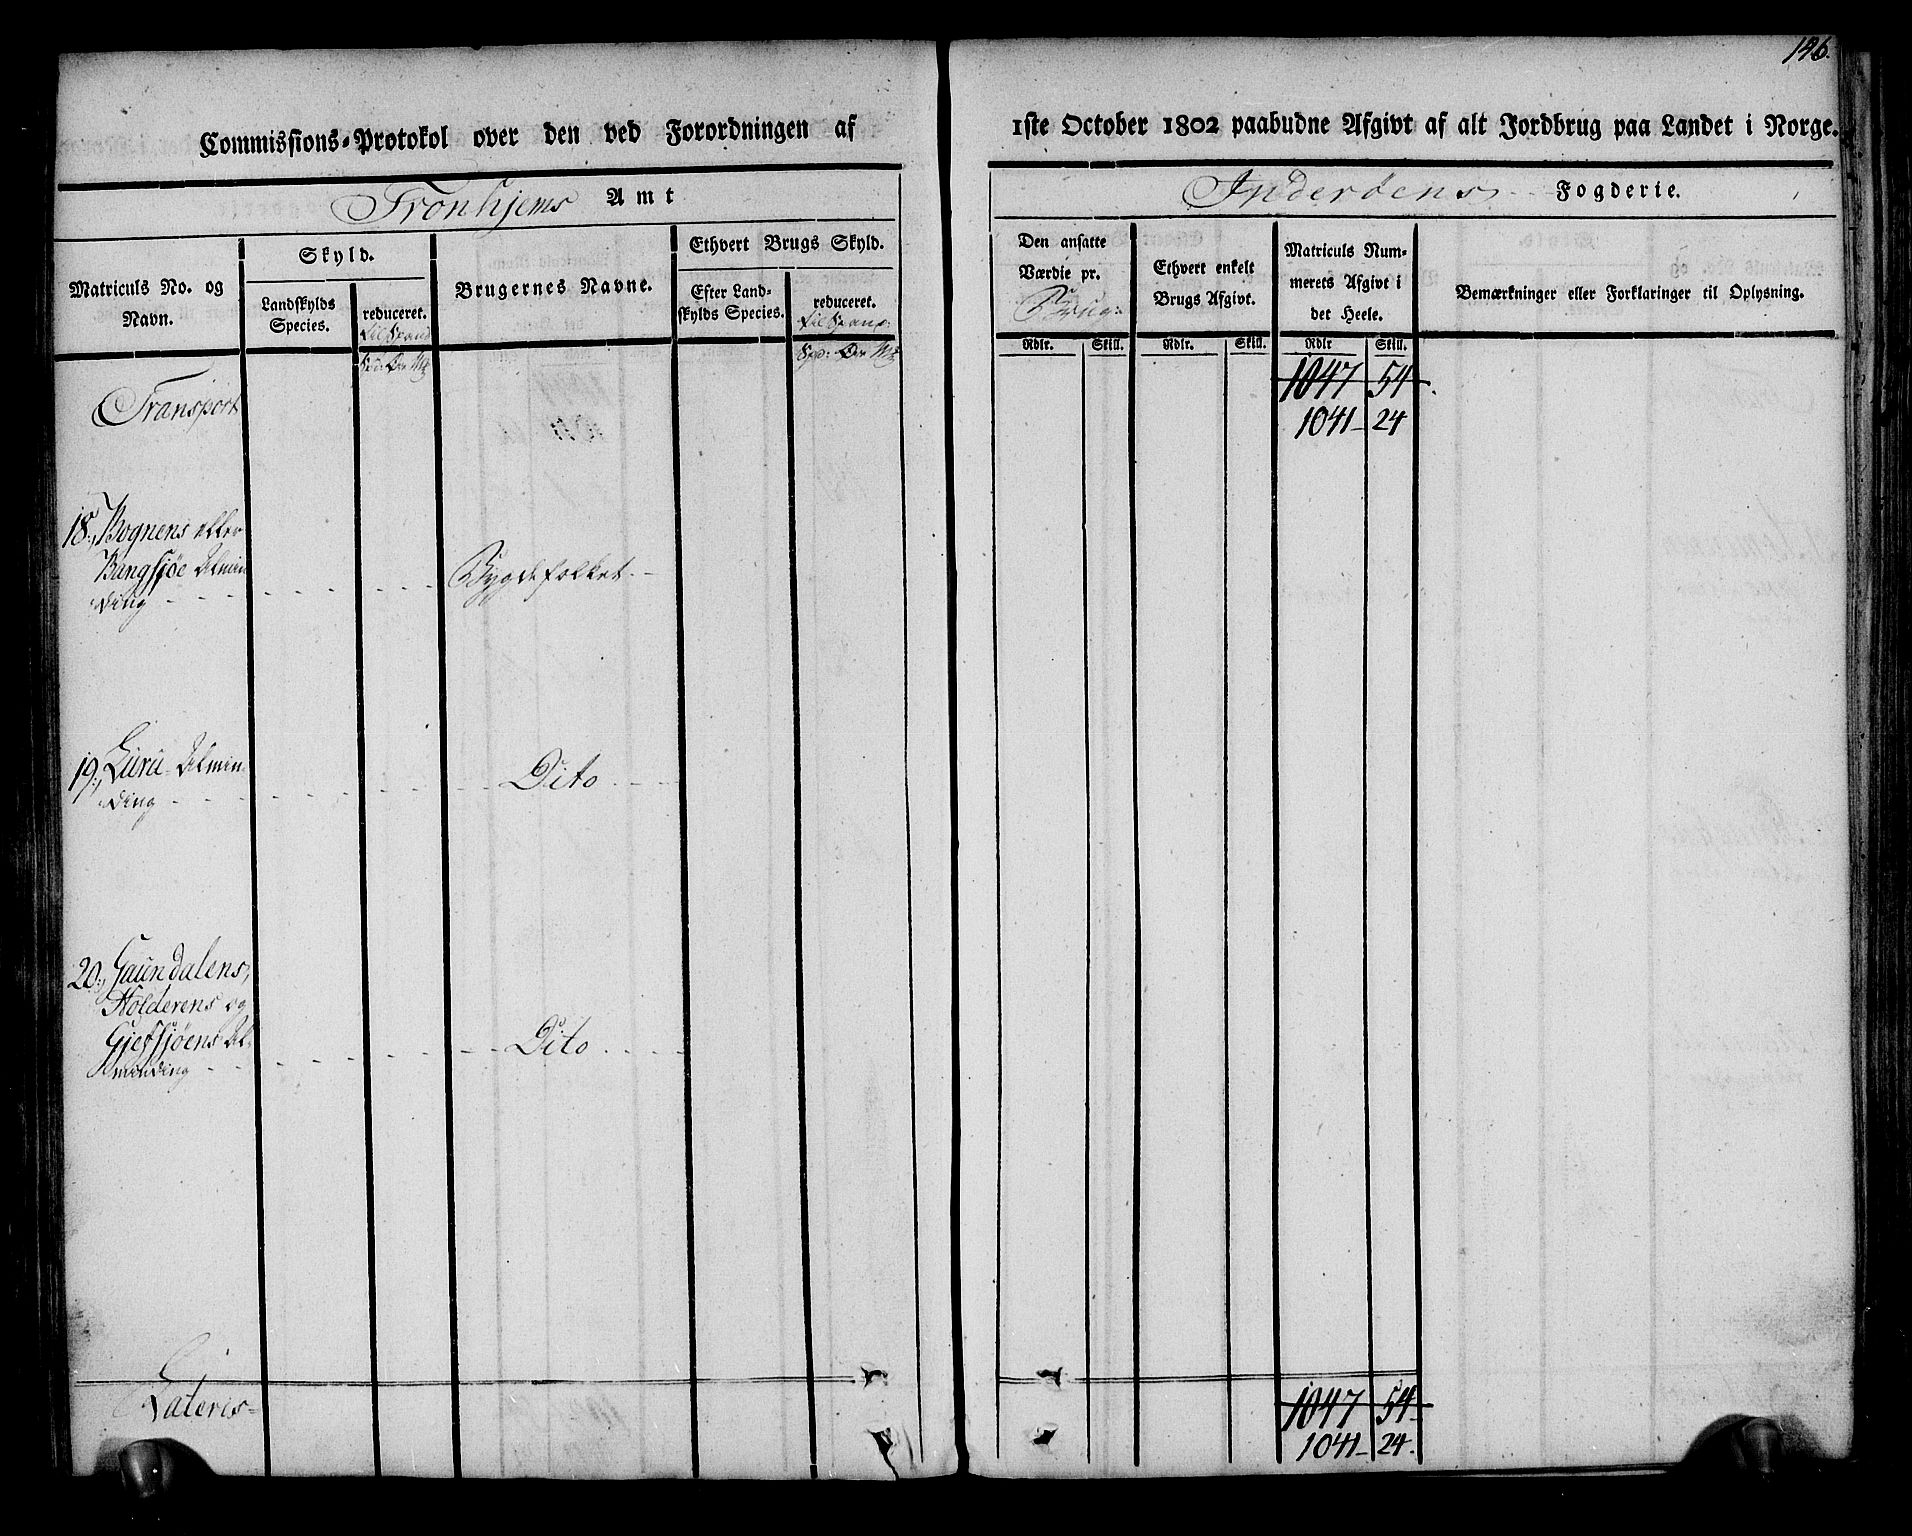 126.
Commissions-Protokol over den ved Forordningen af
1ste October 1802 paabudne Afgivt af alt Jordbrug paa Landet i Norge.
Tronhjems Amt
Inderöens Fogderie.
Matriculs No. og
Navn.
Skyld.
Landskylds
Species.
reduceret.
til Spand
Spd: Ör Mk
Brugernes Navne.
Ethvert Brugs Skyld.
Efter Land-
skylds Species.
reduceret.
til Spand:
Spd: Ör Mk
Den ansatte
Værdie pr.
Brug:
Rdlr. Skill.
Ethvert enkelt
Brugs Afgivt.
Rdlr. Skill.
Matriculs Num-
merets Afgivt i
det Heele.
Rdlr Skill.
Bemærkninger eller Forklaringer til Oplysning.
Transport
1047 54
1041 24
18., Bognens eller
Bangsjøe Almin
ding
Bygdefolket.
19., Luru Almin
ding
Dito
20., Gaundalens,
Holderens og
Gjefsjøens Al-
minding
Dito
Lateris
1047 54
1041 24.